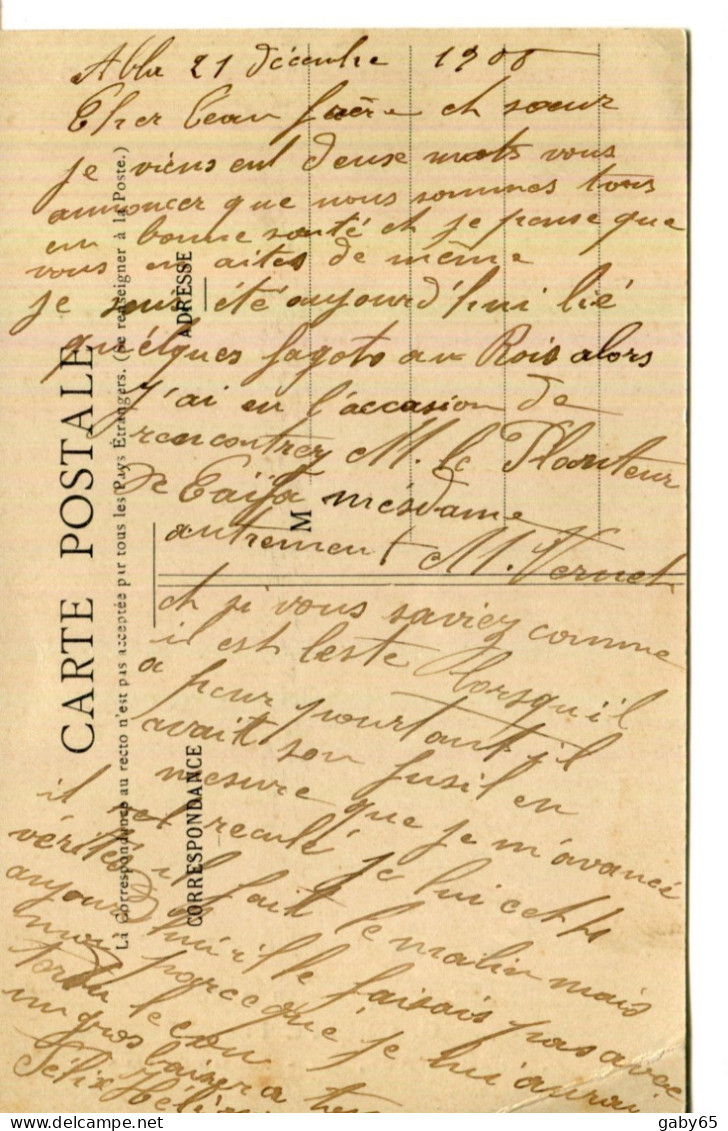 21 décembre 1906
Cher beau frère et sœur
je viens en deux mots vous
annoncer que nous sommes tous
en bonne santé et je pense que
vous en aites de même
je suis été aujourd'hui lié
quelques fagots au Rois alors
J'ai eu l'accasion de
rencontrez M. le Planteur
de Caïfa mésdame
autrement M. Vernet
et si vous saviez comme
il est leste lorsqu'il
a peur pourtant il
avait son fusil en
mesure que je m'avancé
il est reculé je lui cette
vérités il fait le malin mais
aujourd'hui il le faisais pas avec
moi parce que je lui aurai
tordu le cou
un gros baiser a
Félix
CARTE POSTALE
La Correspondance au recto n'est pas acceptée par tous les Pays Étrangers. (Se renseigner à la Poste.)
CORRESPONDANCE
ADRESSE
M
delcampe.net
gaby65